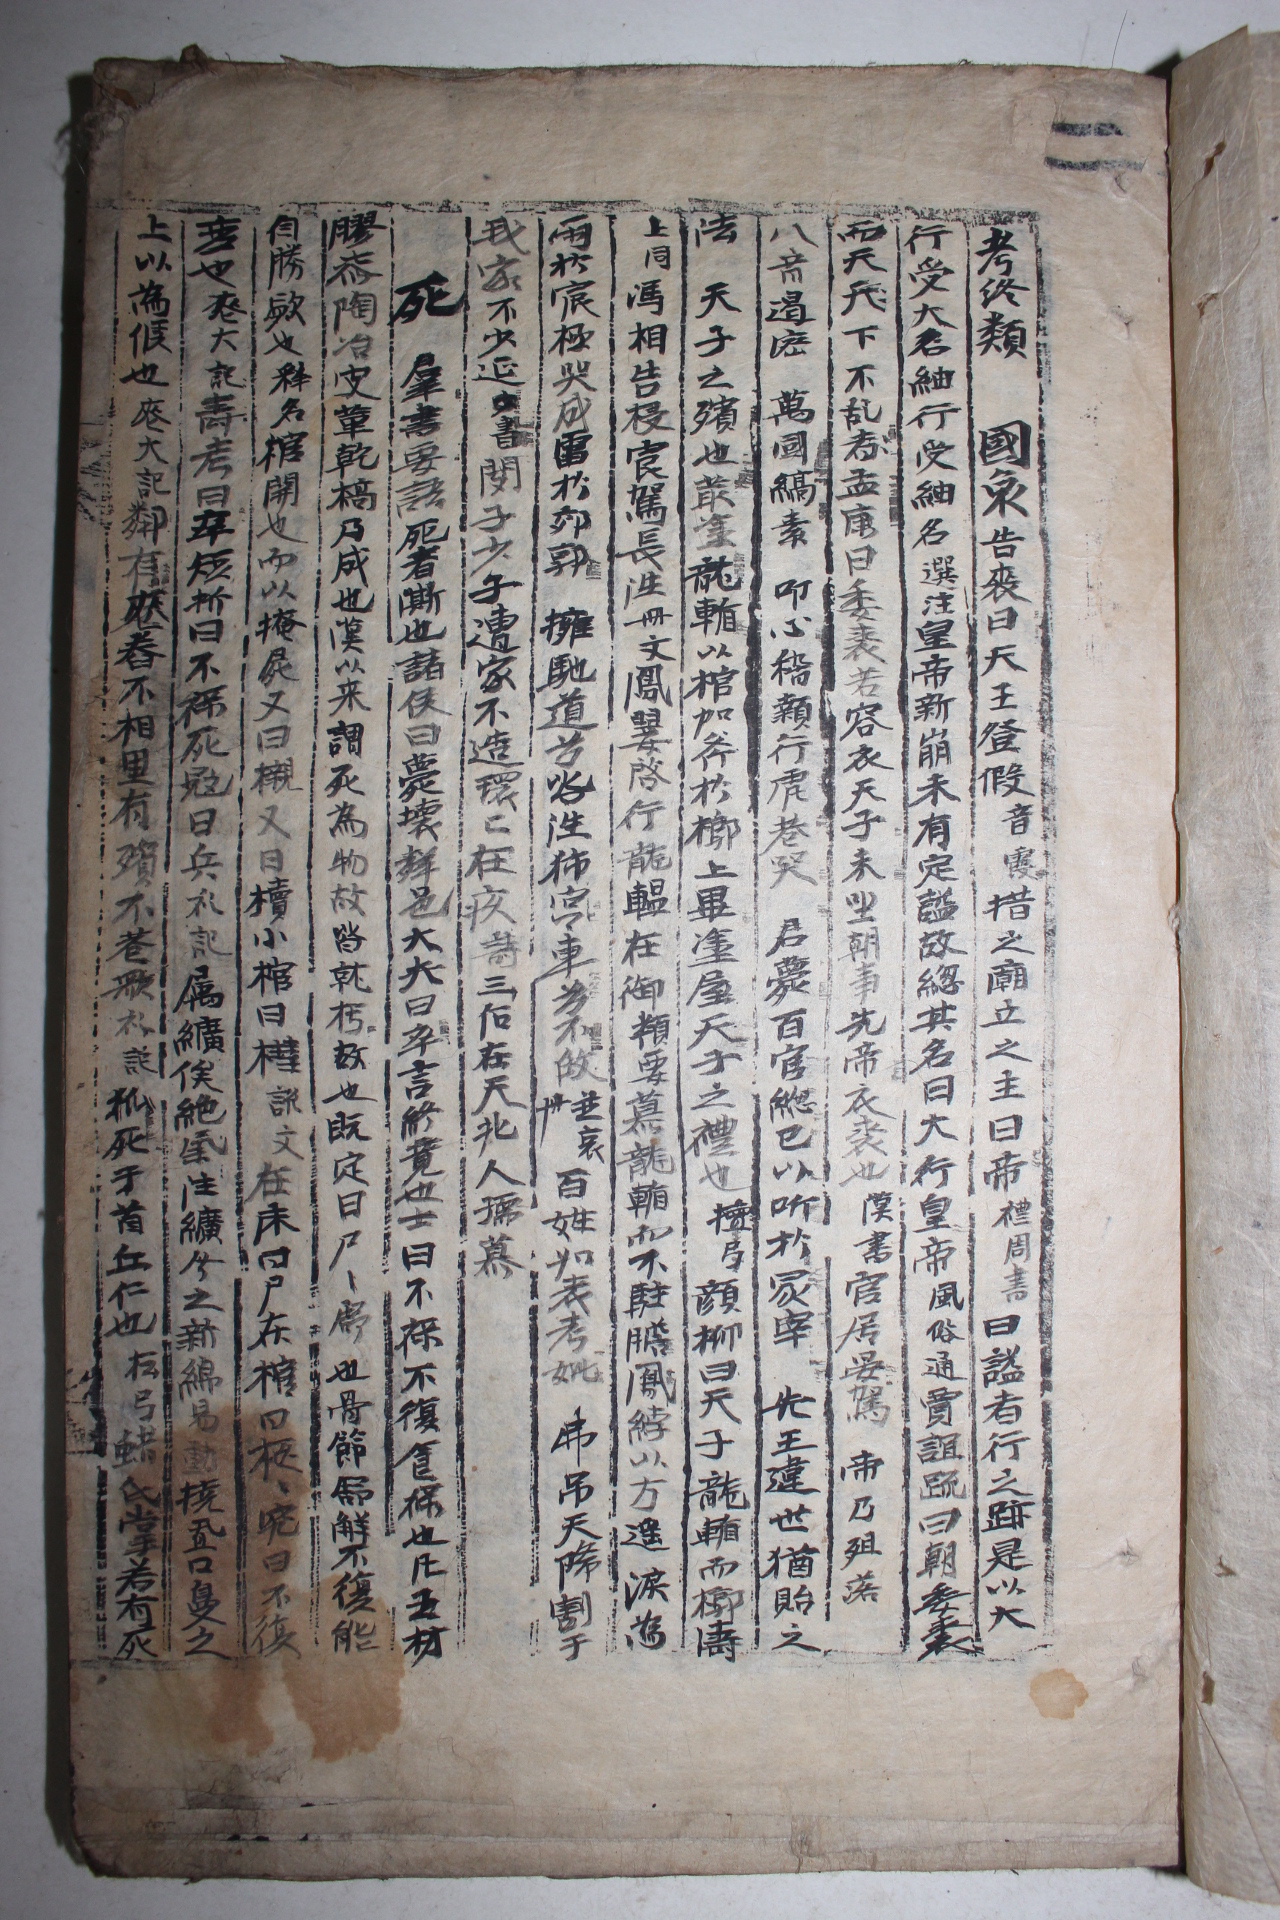 考終類 國哀 告喪曰天王登假 音霞 措之廟立之主曰帝 禮 周書曰謚者行之跡是以大
行受大名細行受細名 選注 皇帝新崩未有定謚故緫其名曰大行皇帝 風俗通 賈誼疏曰朝委裘
而天下不乱 孟康曰委裘若容衣天子未坐朝事先帝衣裘也 漢書 宮居晏駕 帝乃殂落
八音遏密 萬國縞素 叩心 顙行 巷哭 君薨百官緫已以听於冢宰 先王違世猶貽之
法 天子之殯也菆塗龍輴以棺加斧於槨上畢塗屋天子之禮也 檀弓 顔柳曰天子龍輴而槨幬
上同 馮相告祲宸駕長往 冊文 鳳翣啓行龍轀在御 類要 龍輴而不駐 鳳綍以方遥 淚為
雨於宸極哭成雷於郊郭 擁馳道兮 宮車兮不 哀冊 百姓如喪考妣 弗吊天降割于
我家不少延 書 閔予小子遭家不造嬛〻在疚 詩 三后在天 北人孺慕
死 羣書要語 死者澌也諸侯曰薨壞聲也大夫曰卒言終竟也士曰不祿不復食祿也凡五材
膠漆陶冶皮革乾槁乃成也漢以来謂死為物故皆就朽故也既定曰尸〻舒也骨節舒解不復能
自勝歛也 釋名 棺關也而以掩屍又曰櫬又曰櫝小棺曰槥 說文 在床曰尸在棺曰柩〻究曰不復
変也 喪大記 壽考曰卒短折曰不祿死寇曰兵 礼記 属纊俟絶氣 注 纊今之新綿易動揺置口鼻之
上以為候也 喪大記 鄰有喪舂不相里有殯不巷歌 礼記 狐死于首丘仁也 檀弓 蜡氏掌若有死